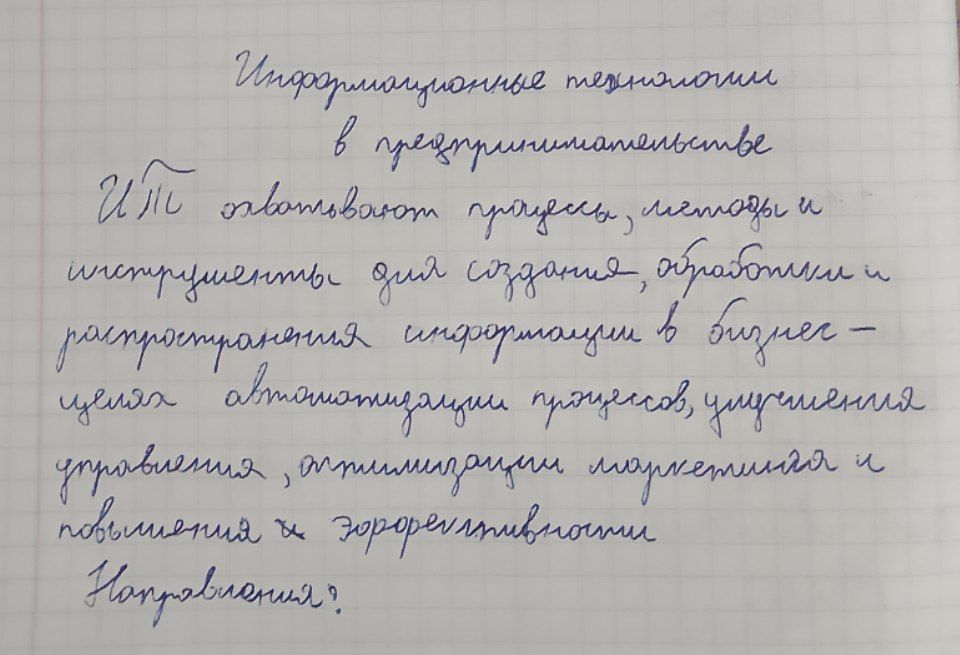 Информационные технологии
в предпринимательстве
ИТ охватывают процессы, методы и
инструменты для создания, обработки и
распространения информации в бизнес-
целях автоматизации процессов, улучшения
управления, оптимизации маркетинга и
повышения и эффективности
Направления?